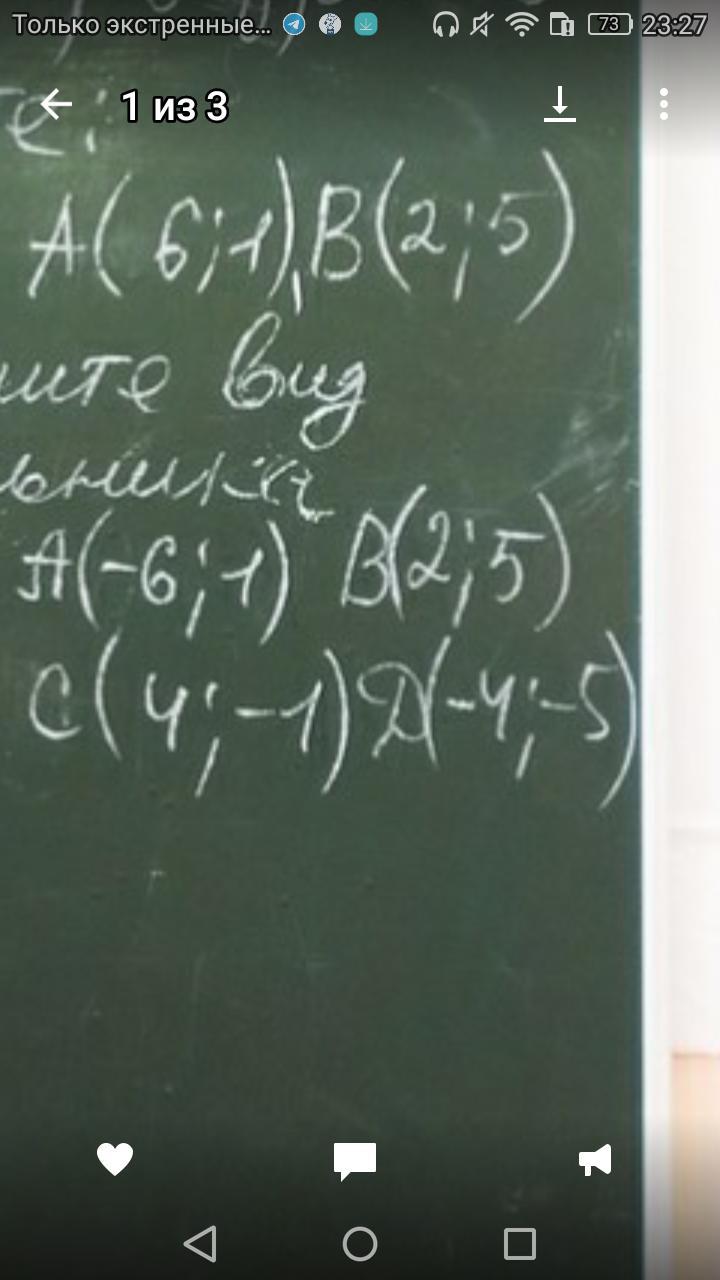 Только экстренные... 73 23:27
1 из 3
те:
A( 6;1), B(2;5)
ите вид
ьника
A(-6;1) B(2;5)
C(4;-1) D(-4;-5)